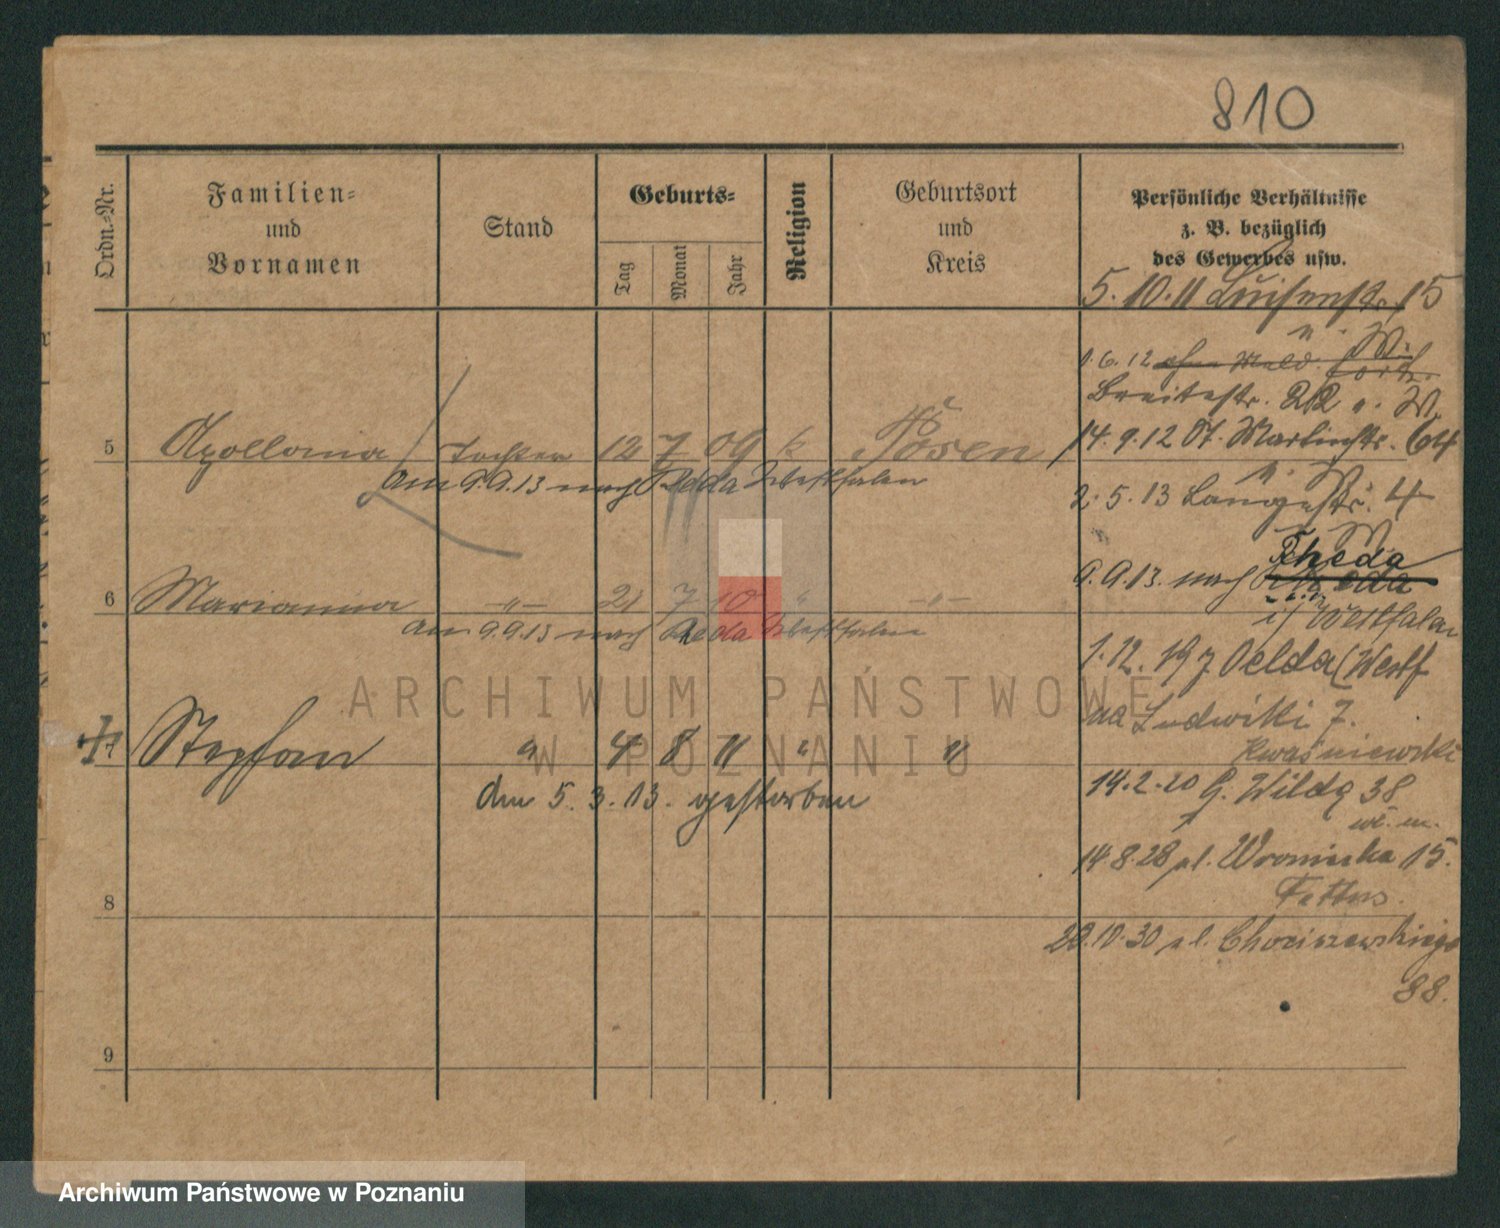 810
Ordn.-Nr.
Familien-
und
Vornamen
Stand
Geburts-
Tag
Monat
Jahr
Religion
Geburtsort
und
Kreis
Persönliche Verhältnisse
z. B. bezüglich
des Gewerbes usw.
5. 10. 11 Luisenstr. 15
u. W.
1. 6. 12 ohne Meld. fort.
Breitestr. 22 u. W.
5 Apollonia Tochter 12 7 09 k Posen
14. 9. 12 St. Martinstr. 64
am 9.9.13 nach Rheda Westfalen
u. W.
2. 5. 13 Langestr. 4
W.
Rheda
9. 9. 13. nach
6 Marianna —"— 21 7 10 " —"—
i/ Westfalen
am 9.9.13 nach Reda Westfalen
1. 12. 19 z Oelda (Westf
na Ludwiki 7.
Kwaśniewski
7 Stephan " 4 8 11 " "
14. 2. 20 G. Wilda 38
den 5. 3. 13. gestorben
wł. m.
14. 8. 28 pl. Wroniecka 15.
8
20. 10. 30 Chociszewskiego
88.
9
ARCHIWUM PAŃSTWOWE
W POZNANIU
Archiwum Państwowe w Poznaniu